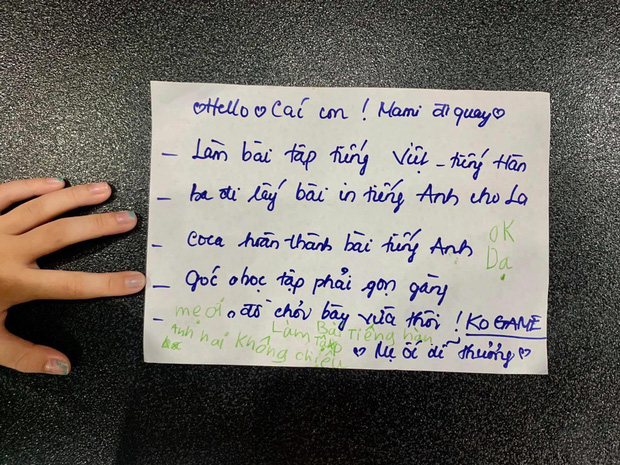 ♡Hello♡ Các con ! Mami đi quay♡
– Làm bài tập tiếng Việt – tiếng Hàn
– Ba đi lấy bài in tiếng Anh cho La
– Coca hoàn thành bài tiếng Anh
OK
Dạ
– Góc học tập phải gọn gàng
– đồ chơi bày vừa thôi ! KO GAME
mẹ ơi
Anh hai không chịu Làm Bài Tập Tiếng hàn
♡ Mẹ ối dễ thương ♡